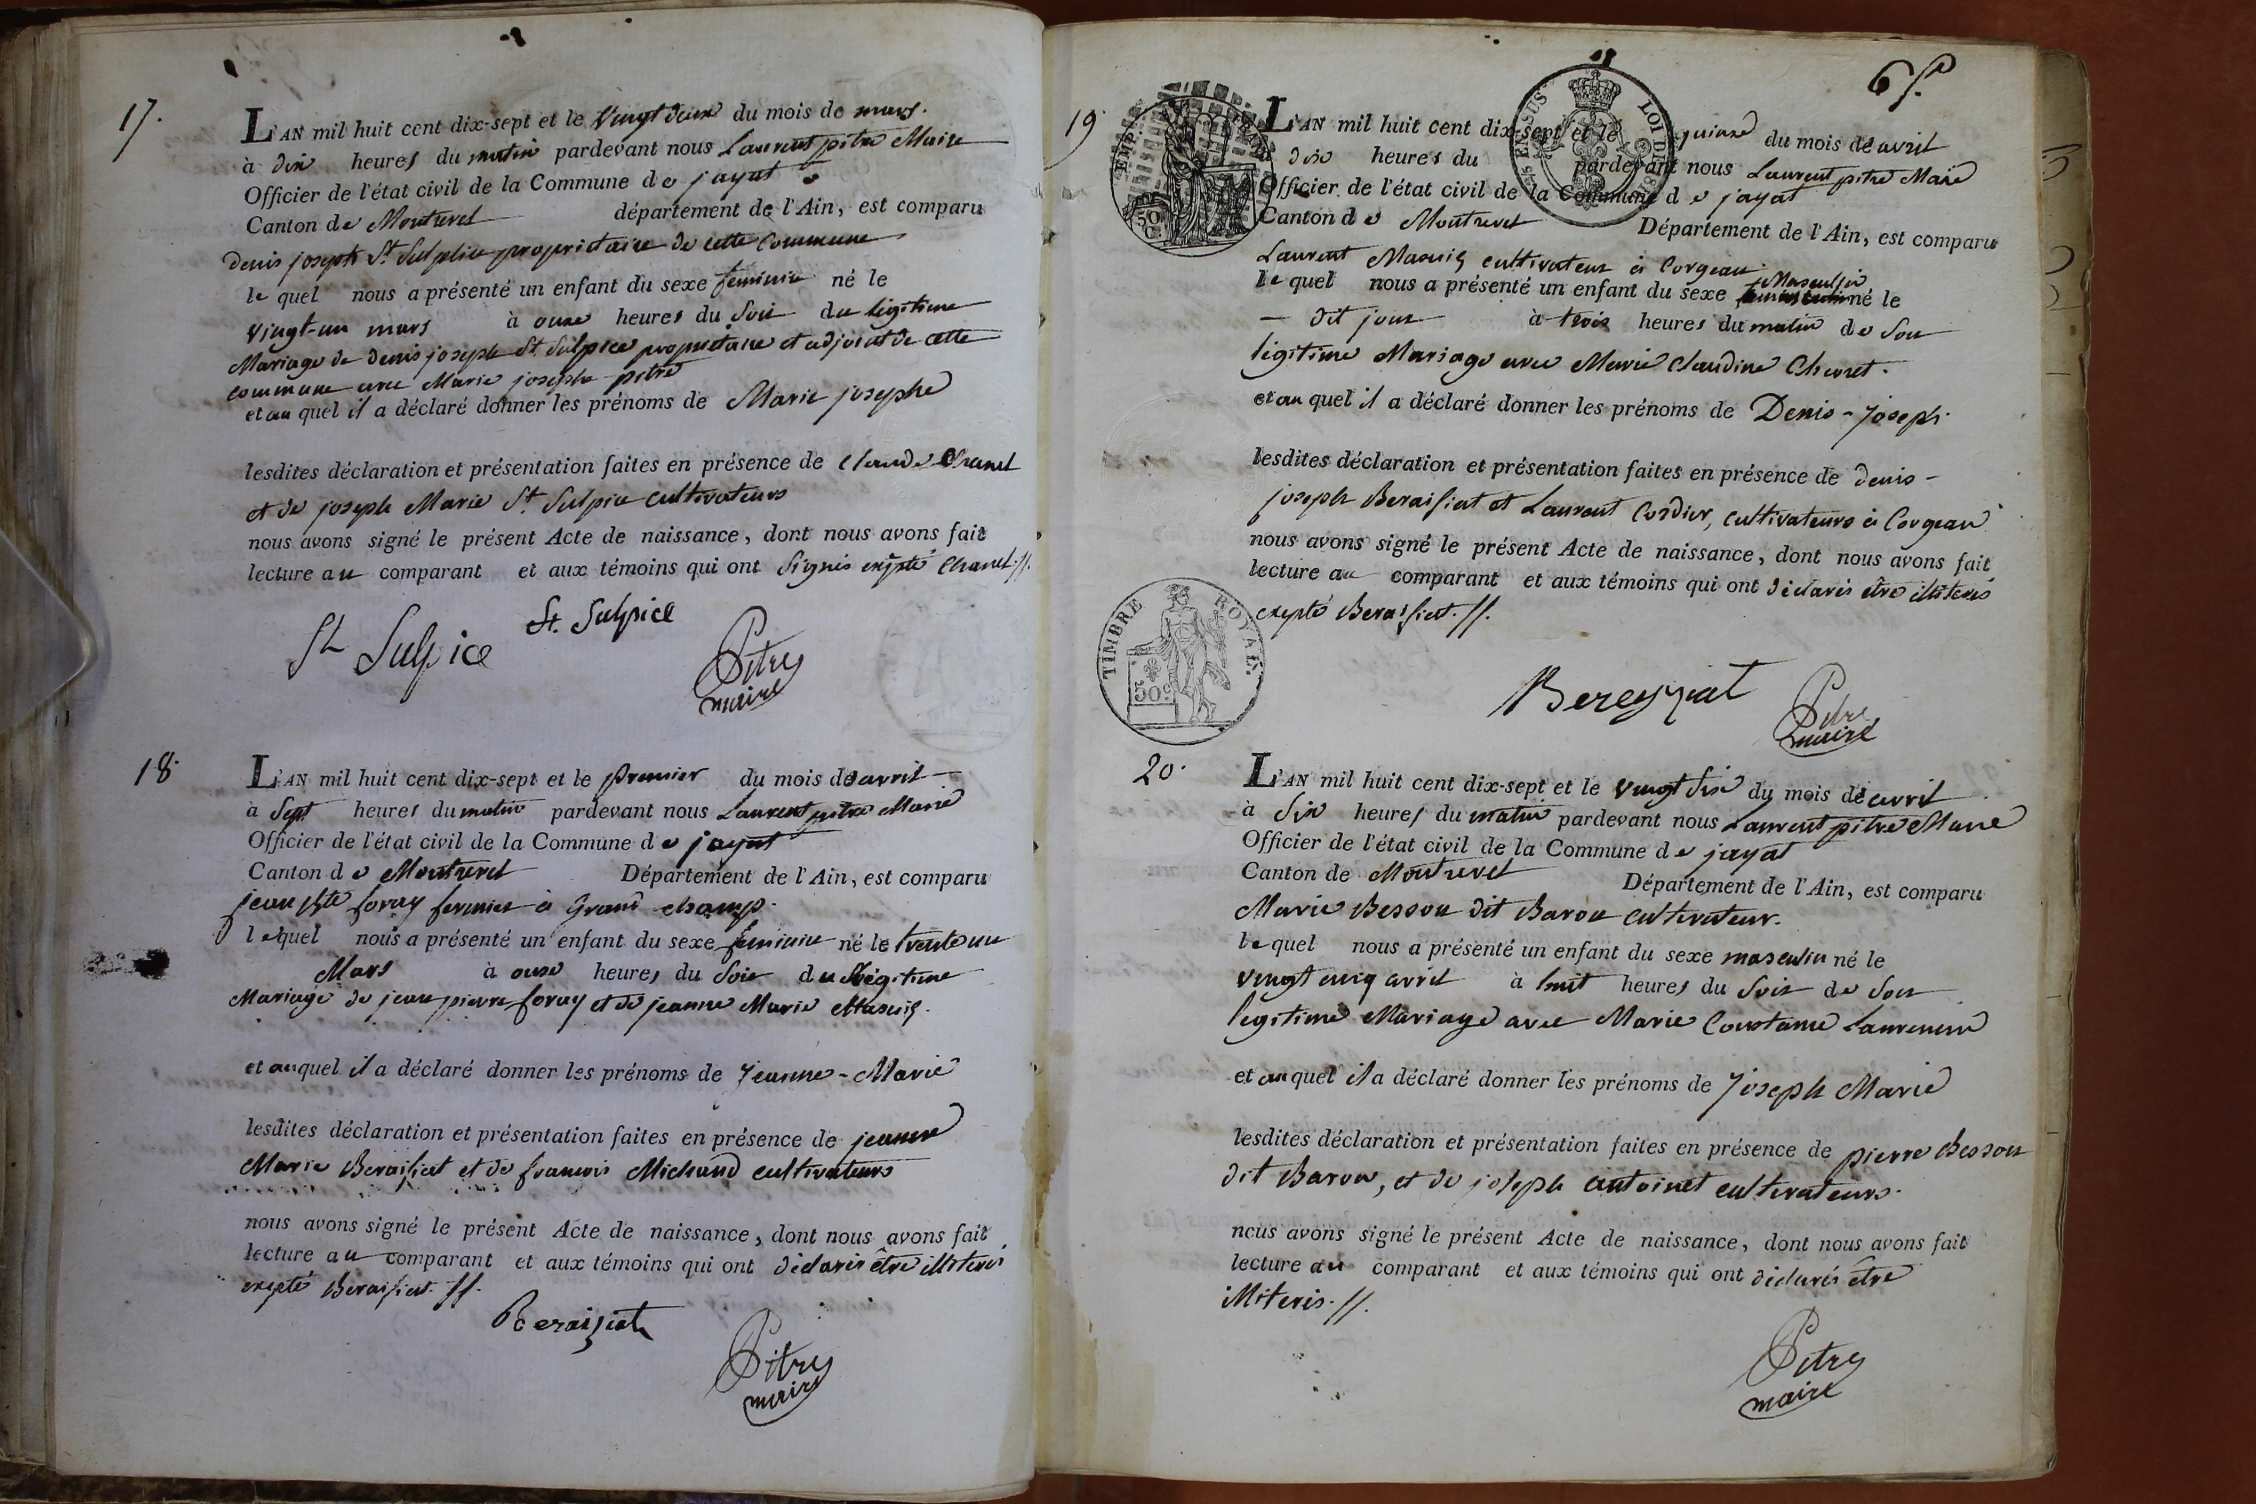 17.
L'AN mil huit cent dix-sept et le vingt deux du mois de mars.
à dix heures du matin pardevant nous Laurent pitre Maire
Officier de l'état civil de la Commune de jayat
Canton de Montrevel département de l'Ain, est comparu
denis joseph St. Sulpice propriétaire de cette commune
le quel nous a présenté un enfant du sexe feminin né le
vingt-un mars à onze heures du Soir du légitime
Mariage de denis joseph St Sulpice propriétaire et adjoint de cette
commune avec Marie josephe pitre
et au quel il a déclaré donner les prénoms de Marie josephe
lesdites déclaration et présentation faites en présence de claude Chanel
et de joseph Marie St Sulpice cultivateurs
nous avons signé le présent Acte de naissance, dont nous avons fait
lecture au comparant et aux témoins qui ont Signés exepté Chanel.//.
St Sulpice St. Sulpice
Pitre
maire
18.
L'AN mil huit cent dix-sept et le premier du mois de avril
à Sept heures du matin pardevant nous Laurent pitre Marie
Officier de l'état civil de la Commune de jayat
Canton de Montrevel Département de l'Ain, est comparu
jean pte foray fermier à Grand champ.
le quel nous a présenté un enfant du sexe feminin né le trente un
Mars à onze heures du Soir du légitime
Mariage de jean pierre foray et de jeanne Marie Mazuis.
et au quel il a déclaré donner les prénoms de Jeanne-Marie
lesdites déclaration et présentation faites en présence de jeanne
Marie Beraisiat et de francois Michaud cultivateurs
nous avons signé le présent Acte de naissance, dont nous avons fait
lecture au comparant et aux témoins qui ont déclarés être illiterés
exepté Beraisiat.//.
Beraiziat
Pitre
maire
65.
19.
TIMBRE ROYAL
50 C.
EN SUS LOI DE 1816
L'AN mil huit cent dix-sept et le quinze du mois de avril
dix heures du pardevant nous Laurent pitre Marie
Officier de l'état civil de la Commune de jayat
Canton de Montrevel Département de l'Ain, est comparu
Laurent Mazuis cultivateur à Corgeau.
le quel nous a présenté un enfant du sexe Masculin né le
dit jour à trois heures du matin de Son
légitime Mariage avec Marie Claudine Chevret.
et au quel il a déclaré donner les prénoms de Denis-Joseph.
lesdites déclaration et présentation faites en présence de denis-
joseph Beraisiat et Laurent Cordier, cultivateurs à Corgeau
nous avons signé le présent Acte de naissance, dont nous avons fait
lecture au comparant et aux témoins qui ont déclarés être illiterés
exepté Beraisiat.//.
TIMBRE ROYAL.
50c
Bereyziat
Pitre
maire
20.
L'AN mil huit cent dix-sept et le vingt Six du mois de avril
à Six heures du matin pardevant nous Laurent pitre Marie
Officier de l'état civil de la Commune de jayat
Canton de Montrevel Département de l'Ain, est comparu
Marie Besson dit Baron cultivateur.
le quel nous a présenté un enfant du sexe masculin né le
vingt cinq avril à huit heures du Soir de Son
légitime Mariage avec Marie Constance
et au quel il a déclaré donner les prénoms de Joseph Marie
lesdites déclaration et présentation faites en présence de pierre Besson
dit Baron, et de joseph antoinet cultivateurs.
nous avons signé le présent Acte de naissance, dont nous avons fait
lecture au comparant et aux témoins qui ont déclarés être
illiterés.//.
Pitre
maire